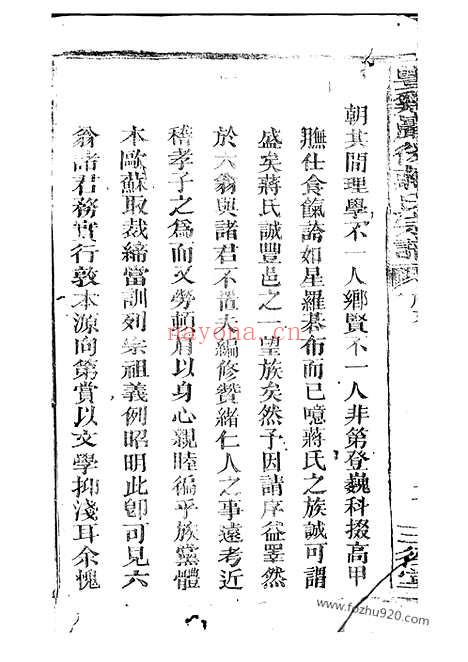 朝其間理學不一人鄉賢不一人非第登巍科掇高甲
膴仕食餼誇如星羅棊布而已噫蔣氏之族誠可謂
盛矣蔣氏誠豐邑之一望族矣然予因請序益睪然
於六翁與諸君不置夫編修贊緒仁人之事遠考近
稽孝子之為而又勞頓肩以身心親睦徧乎族黨體
本歐蘇取裁締當訓列宗祖義例昭明此卽可見六
翁諸君務實行敦本源向第賞以文學抑淺耳余愧
nayona.cn
www.fozhu920.com